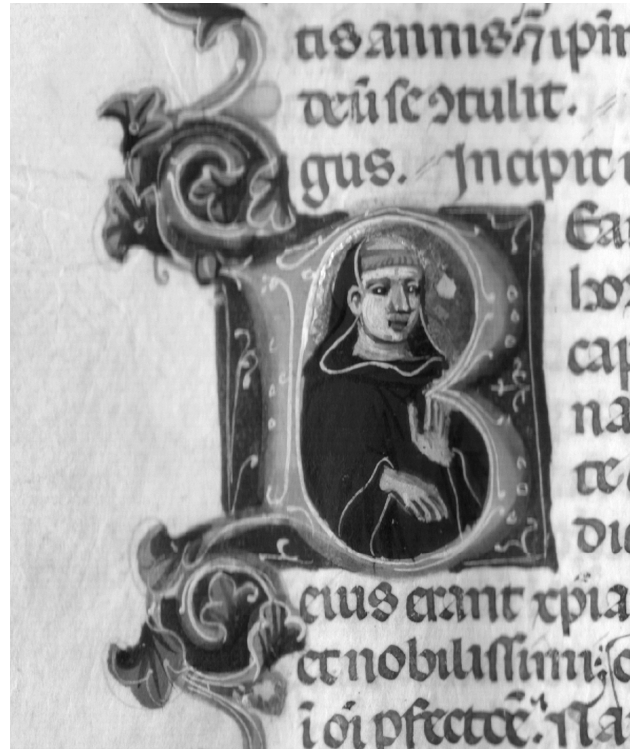 tis annis ⁊ i pīn
deū se ꝯtulit.
gus. Incipit
B
Ea
hoz
cap
na
te
Die
eius erant xp̄ia
et nobilissimi; c
ī oī pfectōē. Na